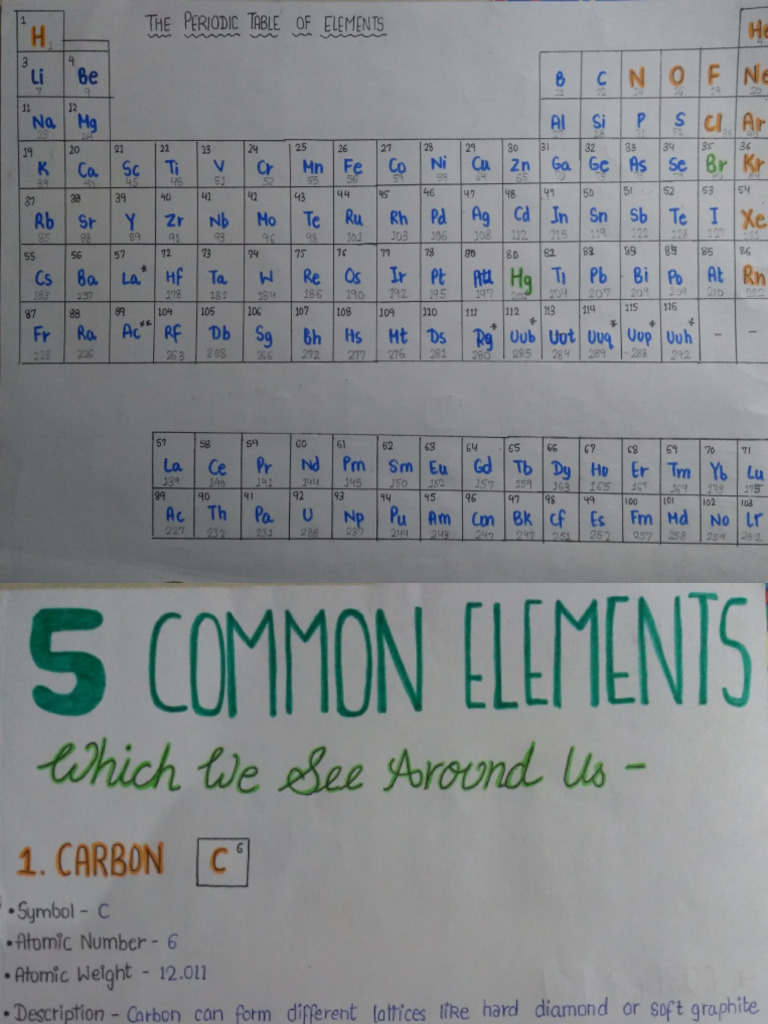 THE PERIODIC TABLE OF ELEMENTS
1 H He
3 Li 7 4 Be 9 B C N O F Ne
11 Na 23 12 Mg Al Si P S Cl Ar
19 20 21 22 23 24 25 26 27 28 29 30 31 32 33 34 35 36
K Ca Sc Ti V Cr Mn Fe Co Ni Cu Zn Ga Ge As Se Br Kr
37 38 39 40 41 42 43 44 45 46 47 48 49 50 51 52 53 54
Rb Sr Y Zr Nb Mo Te Ru Rh Pd Ag Cd In Sn Sb Te I Xe
85 88 89 91 93 96 98 101 103 106 108 112 115 119 122 128 127
55 56 57 72 73 74 75 76 77 78 80 80 82 82 83 84 85 86
Cs Ba La* Hf Ta W Re Os Ir Pt Hg Tl Pb Bi Po At Rn
133 137 178 181 184 186 190 192 195 197 204 207 209 209 210
87 88 89 104 105 106 107 108 109 110 111 112 113 114 115 116
Fr Ra Ac** Rf Db Sg Bh Hs Mt Ds Rg* Uub* Uut Uuq* Uup* Uuh* - -
223 226 263 268 266 272 277 276 281 280 285 284 289 288 292
57 58 59 60 61 62 63 64 65 66 67 68 69 70 71
La Ce Pr Nd Pm Sm Eu Gd Tb Dy Ho Er Tm Yb Lu
139 140 141 144 145 150 152 157 159 163 165 167 169 173 175
89 90 91 92 93 94 45 96 97 98 49 100 101 102 103
Ac Th Pa U Np Pu Am Con Bk Cf Es Fm Md No Lr
227 232 231 238 237 244 243 247 247 251 252 257 258 259 262
5 COMMON ELEMENTS
Which We See Around Us -
1. CARBON C 6
• Symbol - C
• Atomic Number - 6
• Atomic Weight - 12.011
• Description - Carbon can form different lattices like hard diamond or soft graphite